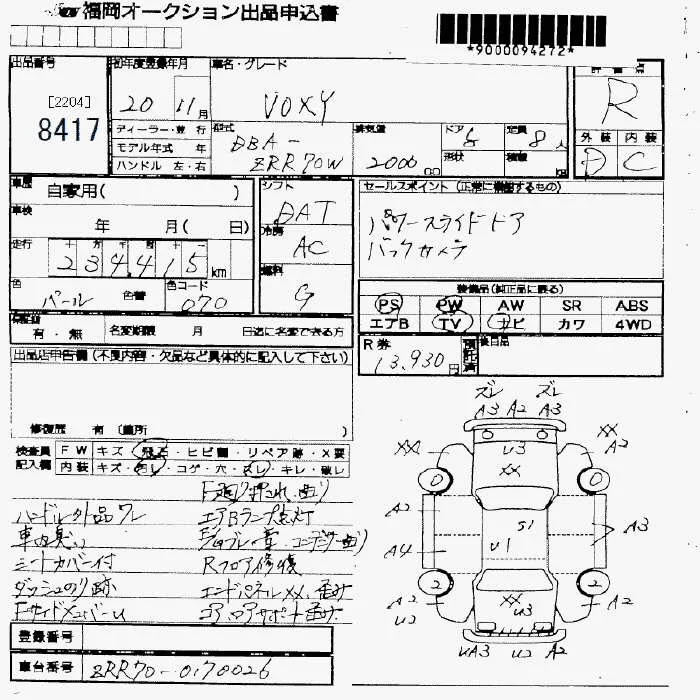 福岡オークション出品申込書
*9000094272*
出品番号
[2204]
8417
初年度登録年月
20 11月
車名・グレード
VOXY
評価点
R
ディーラー・並行
モデル年式 年
ハンドル 左・右
型式
DBA-
ZRR70W
排気量
2000 CC
ドア 5
形状
定員 8人
積載 kg
外装 内装
D C
車歴 自家用( )
車検 年 月( 日)
走行 十万千百十一
234,415 km
色 パール 色替
色コード 070
シフト
DAT
冷房
AC
燃料
G
セールスポイント (正常に機能するもの)
パワースライドドア
バックカメラ
装備品(純正品に限る)
PS PW AW SR ABS
エアB TV ナビ カワ 4WD
有・無 名変期限 月 日迄に名変できる方
R券 13,930円
預託済
後日品
出品店申告欄(不良内容・欠品など具体的に記入して下さい)
修復歴 有 (箇所 )
検査員 FW キズ・飛石・ヒビ割・リペア跡・X要
記入欄 内装 キズ・汚レ・コゲ・穴・スレ・キレ・破レ
ハンドル外品 ワレ
エアBランプ点灯
シートカバー付
Rフロア修復
ダッシュのり跡
エンドパネルXX
ズレ ズレ
A3 A2 A3
XX U3 XX A2
XX
0 0
A2 S1 A3
A4 U1
2 2
A2 XX U3 A2
U2
UA3 U2 A2
登録番号
車台番号 ZRR70-0170026